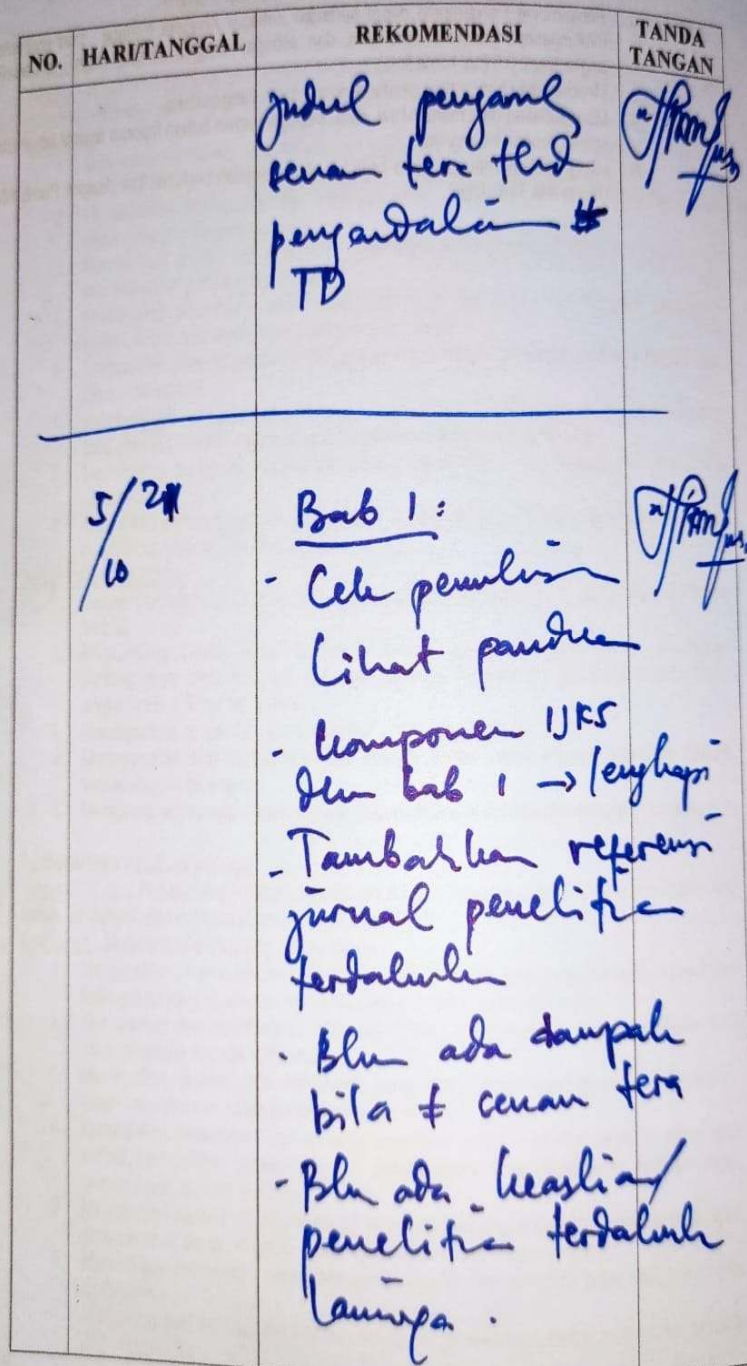 NO. HARI/TANGGAL REKOMENDASI TANDA TANGAN
judul pengaruh
senam tera thd
pengendalian
TD
5/10 21
Bab 1:
- Cek penulisan
lihat panduan
- komponen IJKS
dlm bab 1 → lengkapi
- Tambahkan referensi
jurnal penelitian
terdahulu
- Blm ada dampak
bila ≠ senam tera
- Blm ada keaslian/
penelitian terdahulu
lainnya.